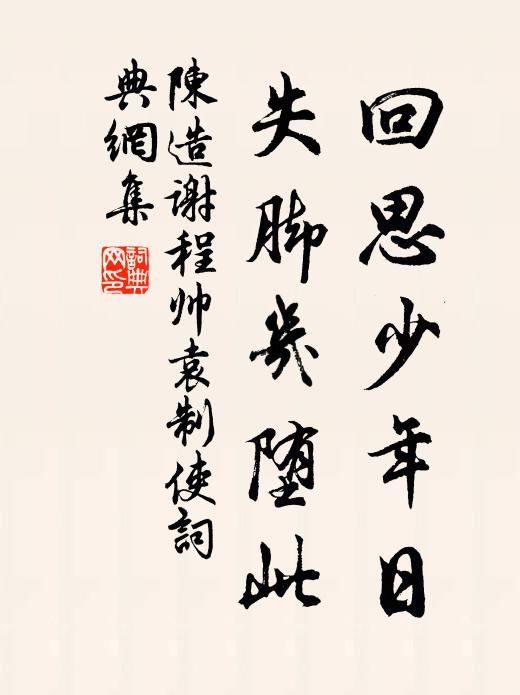 回思少年日
失脚幾堕此
陳造謝程帅袁制使詞
典網集
詞典网印